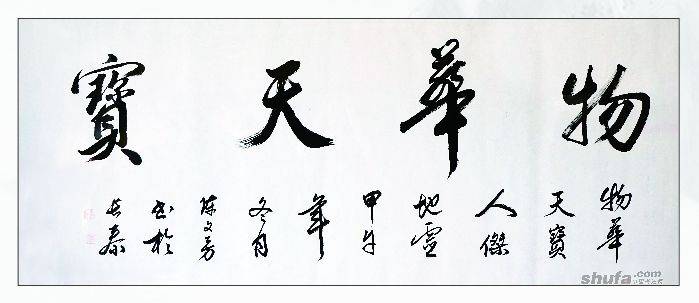 物華天寶
物華
天寶
人傑
地靈
甲午
年
冬月
陈文芳
书於
长泰
shufa.com